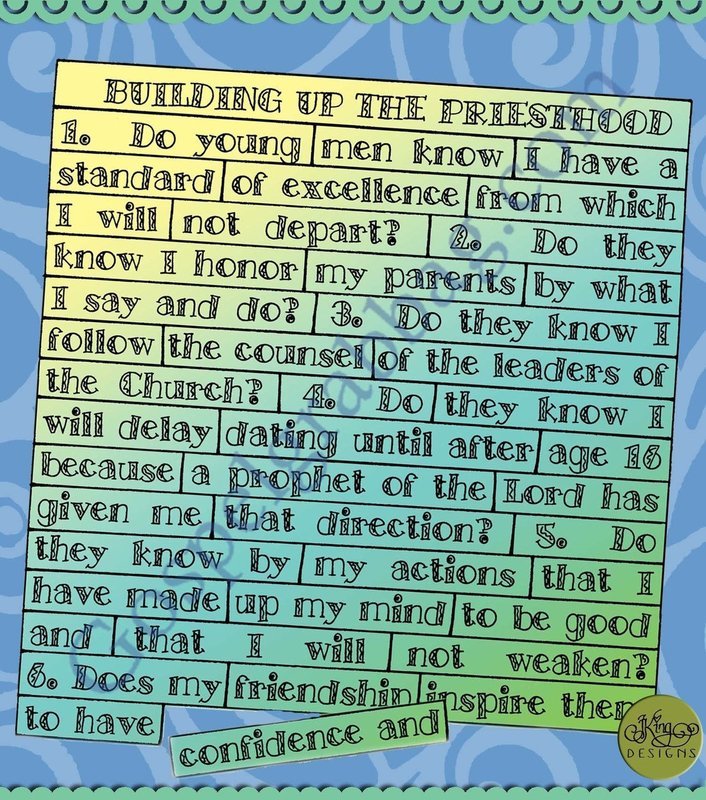 BUILDING UP THE PRIESTHOOD
1. Do young men know I have a
standard of excellence from which
I will not depart? 2. Do they
know I honor my parents by what
I say and do? 3. Do they know I
follow the counsel of the leaders of
the Church? 4. Do they know I
will delay dating until after age 16
because a prophet of the Lord has
given me that direction? 5. Do
they know by my actions that I
have made up my mind to be good
and that I will not weaken?
6. Does my friendship inspire them
to have
confidence and
Gospelgrabbag.com
King
DESIGNS